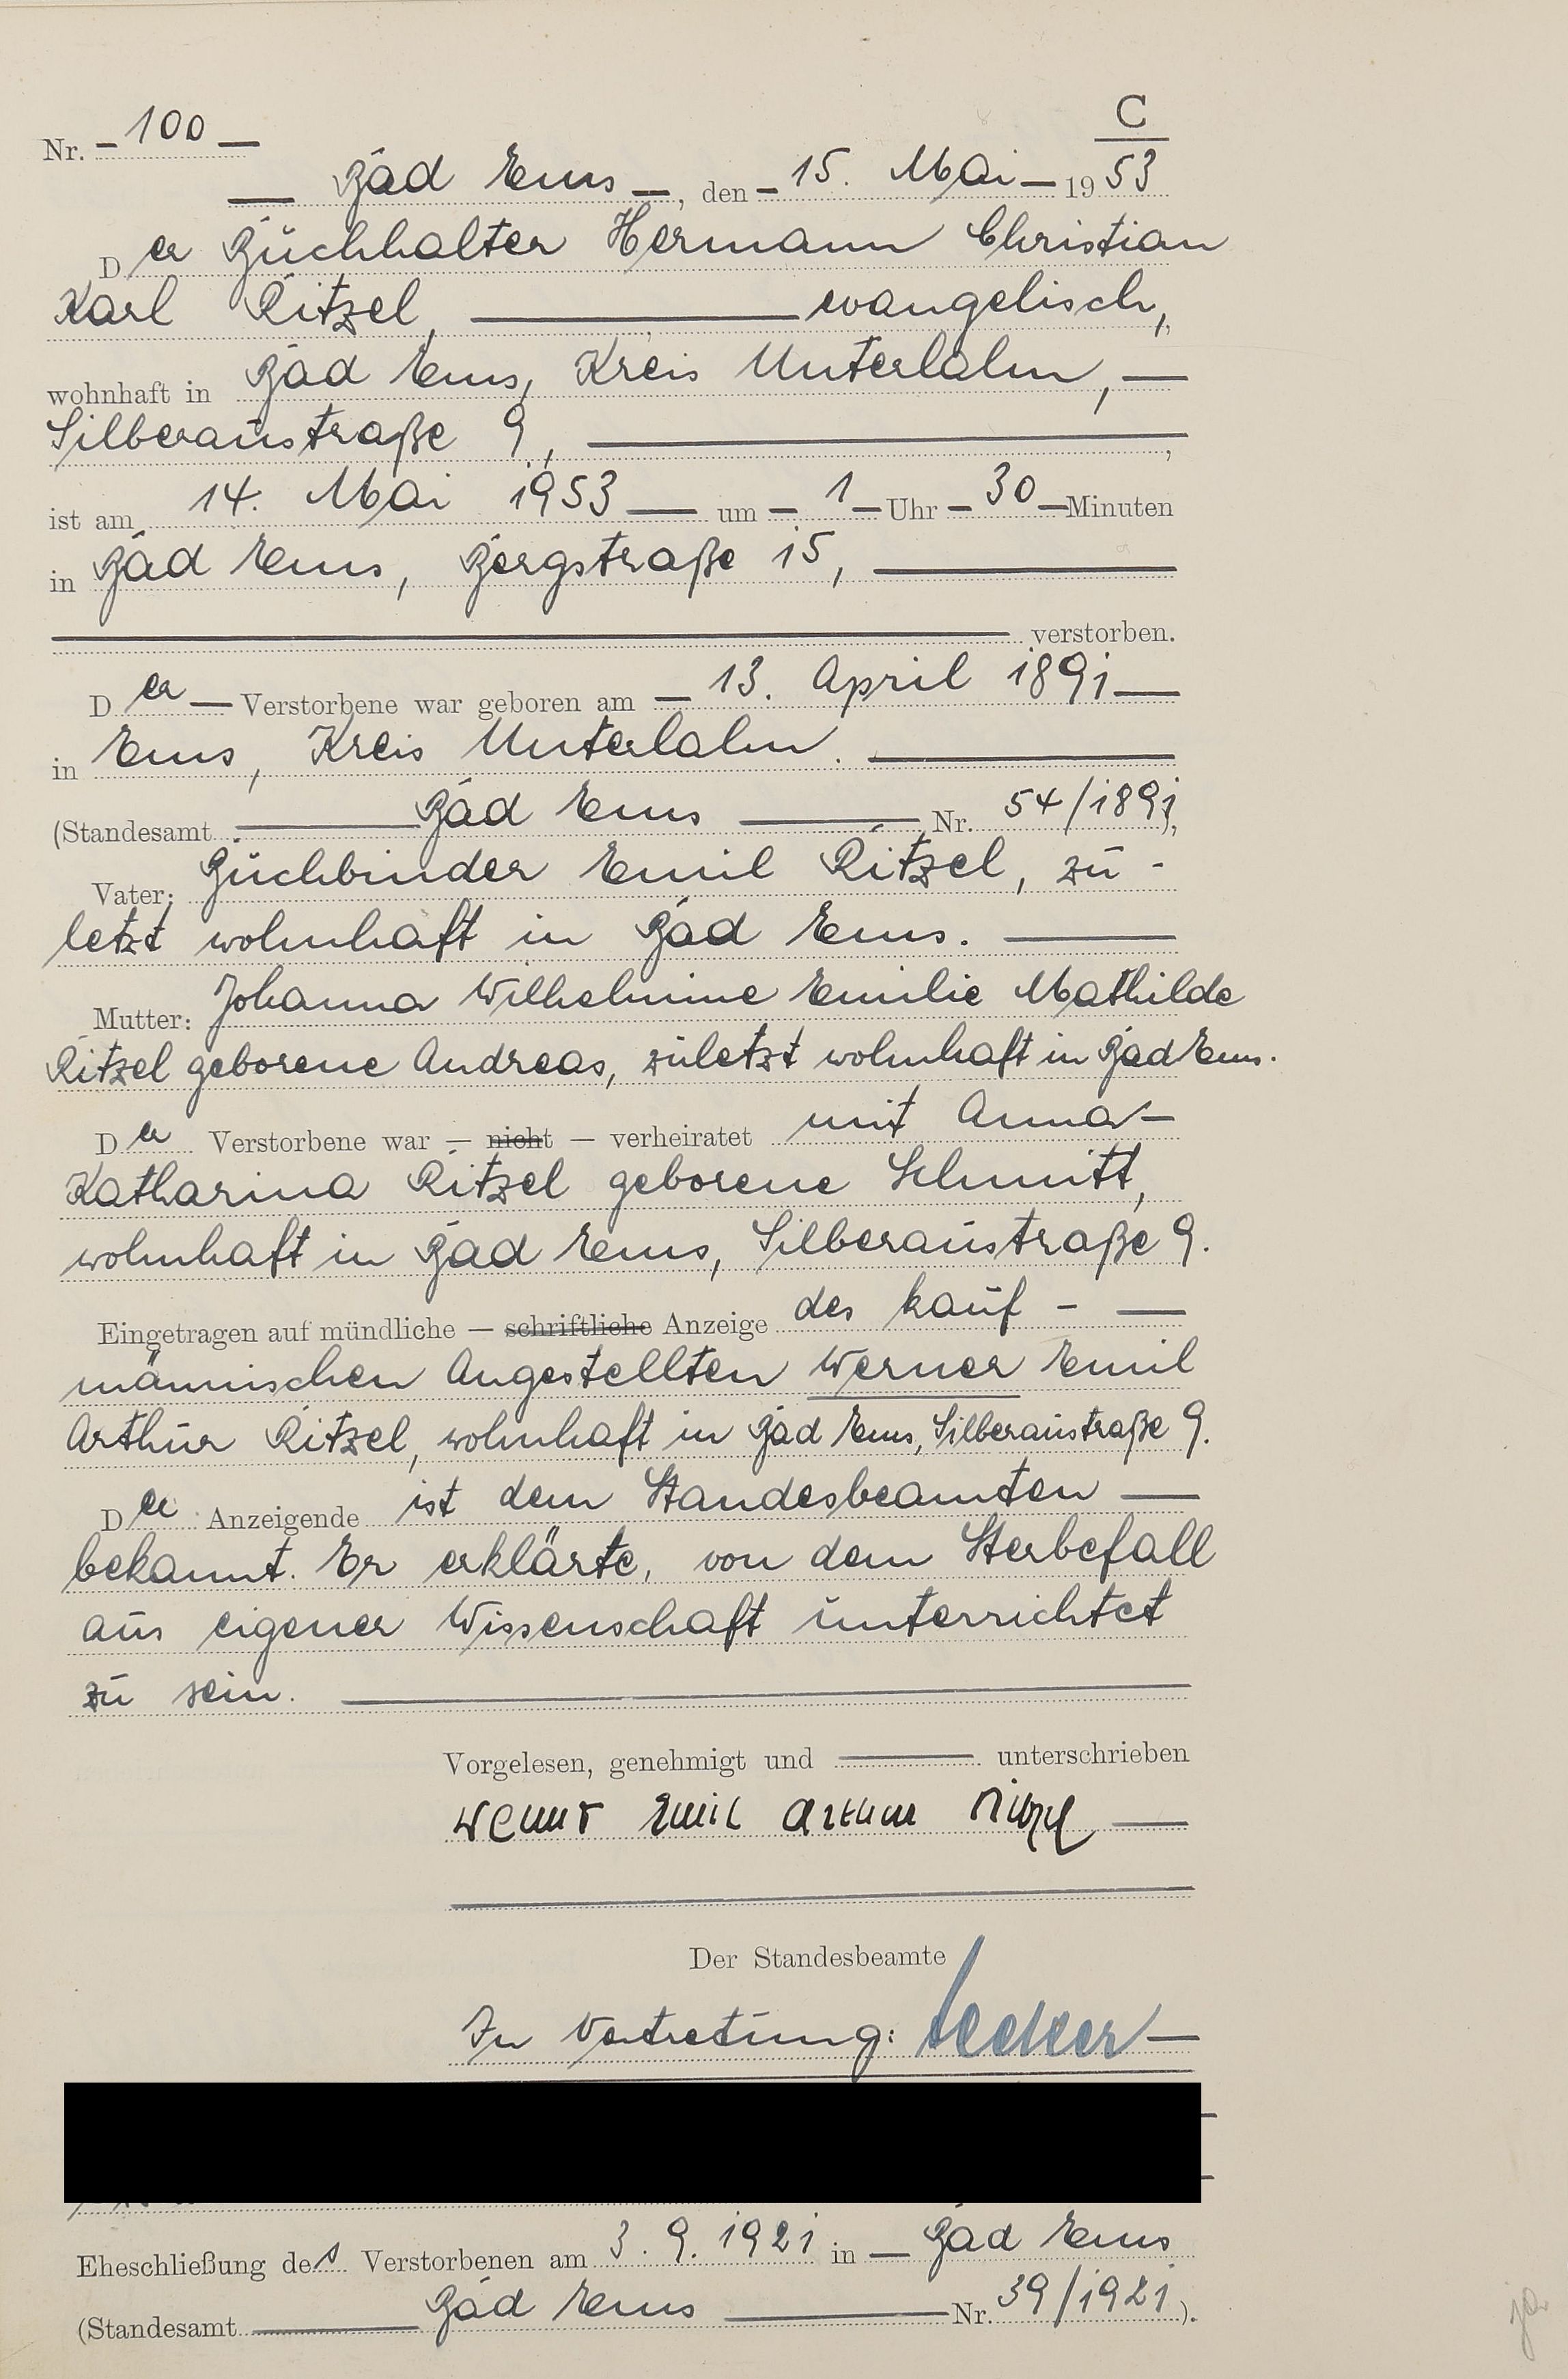 C
Nr. – 100 –
— Bad Ems —, den – 15. Mai – 1953
Der Buchhalter Hermann Christian
Karl Ritzel, — evangelisch,
wohnhaft in Bad Ems, Kreis Unterlahn, —
Silberaustraße 9, —,
ist am 14. Mai 1953 — um – 1 – Uhr – 30 – Minuten
in Bad Ems, Bergstraße 15, —
— verstorben.
Der — Verstorbene war geboren am — 13. April 1891 —
in Ems, Kreis Unterlahn. —
(Standesamt — Bad Ems — Nr. 54/1891),
Vater: Buchbinder Emil Ritzel, zu-
letzt wohnhaft in Bad Ems. —
Mutter: Johanna Wilhelmine Emilie Mathilde
Ritzel geborene Andreas, zuletzt wohnhaft in Bad Ems.
Der Verstorbene war — nicht — verheiratet mit Anna —
Katharina Ritzel geborene Schmitt,
wohnhaft in Bad Ems, Silberaustraße 9.
Eingetragen auf mündliche — schriftliche Anzeige des kauf- —
männischen Angestellten Werner Emil
Arthur Ritzel, wohnhaft in Bad Ems, Silberaustraße 9.
Der Anzeigende ist dem Standesbeamten —
bekannt. Er erklärte, von dem Sterbefall
aus eigener Wissenschaft unterrichtet
zu sein. —
Vorgelesen, genehmigt und — unterschrieben
Werner Emil Arthur Ritzel —
Der Standesbeamte
In Vertretung: —
Eheschließung des Verstorbenen am 3. 9. 1921 in — Bad Ems
(Standesamt — Bad Ems — Nr. 39/1921).